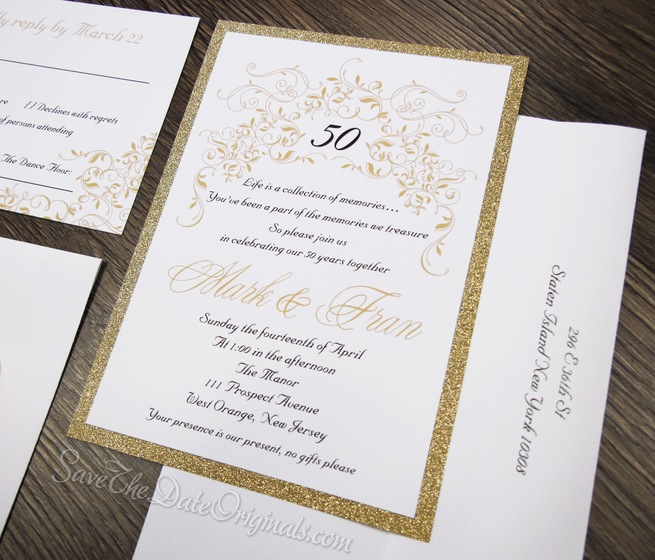 ly reply by March 22
re ( ) Declines with regrets
of persons attending
The Dance Floor:
50
Life is a collection of memories...
You've been a part of the memories we treasure
So please join us
in celebrating our 50 years together
Mark & Fran
Sunday the fourteenth of April
At 1:00 in the afternoon
The Manor
111 Prospect Avenue
West Orange, New Jersey
Your presence is our present, no gifts please
296 E 36th St
Staten Island New York 10308
SaveTheDateOriginals.com